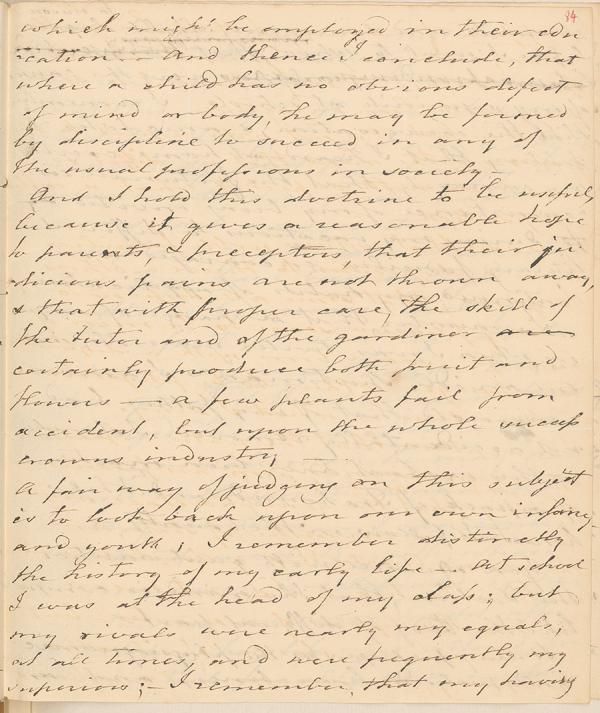 84
which might be employed in their edu
-cation. — And thence I conclude, that
where a child has no obvious defect
of mind or body, he may be formed
by discipline to succeed in any of
the usual professions in society —
And I hold this doctrine to be useful,
because it gives a reasonable hope
to parents, & preceptors, that their ju
-dicious pains are not thrown away,
& that with proper care, the skill of
the tutor and of the gardiner are
certainly produce both fruit and
flowers — a few plants fail from
accident, but upon the whole success
crowns industry —
A fair way of judging on this subject
is to look back upon our own infancy
and youth; I remember distinctly
the history of my early life — At school
I was at the head of my class; but
my rivals were nearly my equals,
at all times, and were frequently my
superiors; — I remember, that my having